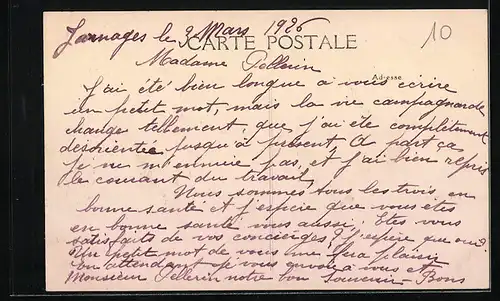 Jarnages le 3 Mars 1926
10
CARTE POSTALE
Madame Pellerin
Adresse
J'ai été bien longue à vous écrire
un petit mot, mais la vie campagnarde
change tellement, que j'ai éte complètement
désorientée jusqu'à présent, à part ça
je ne m'ennuie pas, et j'ai bien repris
le courant du travail
Nous sommes tous les trois, en
bonne santé et j'espère que vous êtes
en bonne santé vous aussi; Etes vous
satisfaits de vos concierges, j'espère que oui?
Un petit mot de vous me fera plaisir
En attendant je vous envoie à vous et
Monsieur Pellerin notre bon Souvenir Bons